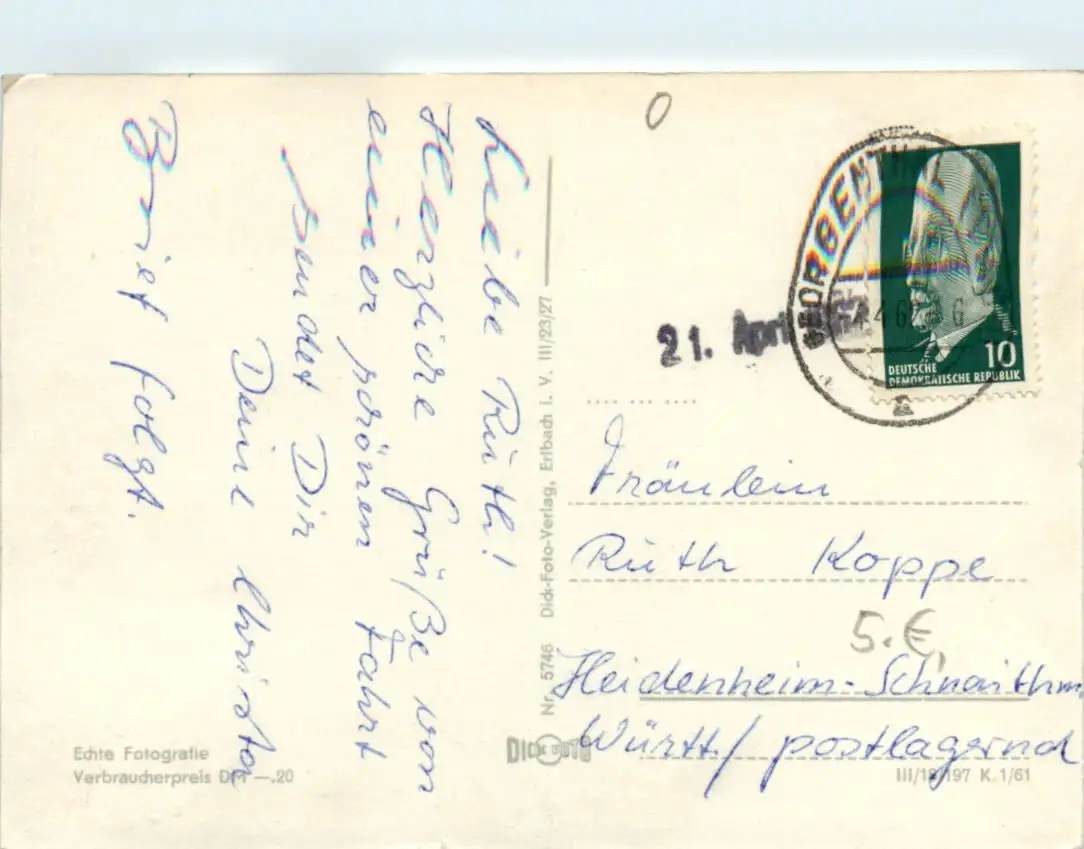 Liebe Ruth!
Herzliche Grüße von
einer schönen Fahrt
sendet Dir
Deine Christa
Brief folgt.
Echte Fotografie
Verbraucherpreis DM —.20
Nr. 5746 Dick-Foto-Verlag, Erlbach i. V. III/23/27
DICK FOTO
0
GEORGENTHAL
21. April
10
DEUTSCHE
DEMOKRATISCHE REPUBLIK
Fräulein
Ruth Koppe
5.€
Heidenheim-Schnaithm.
Württ/ postlagernd
III/18/197 K. 1/61